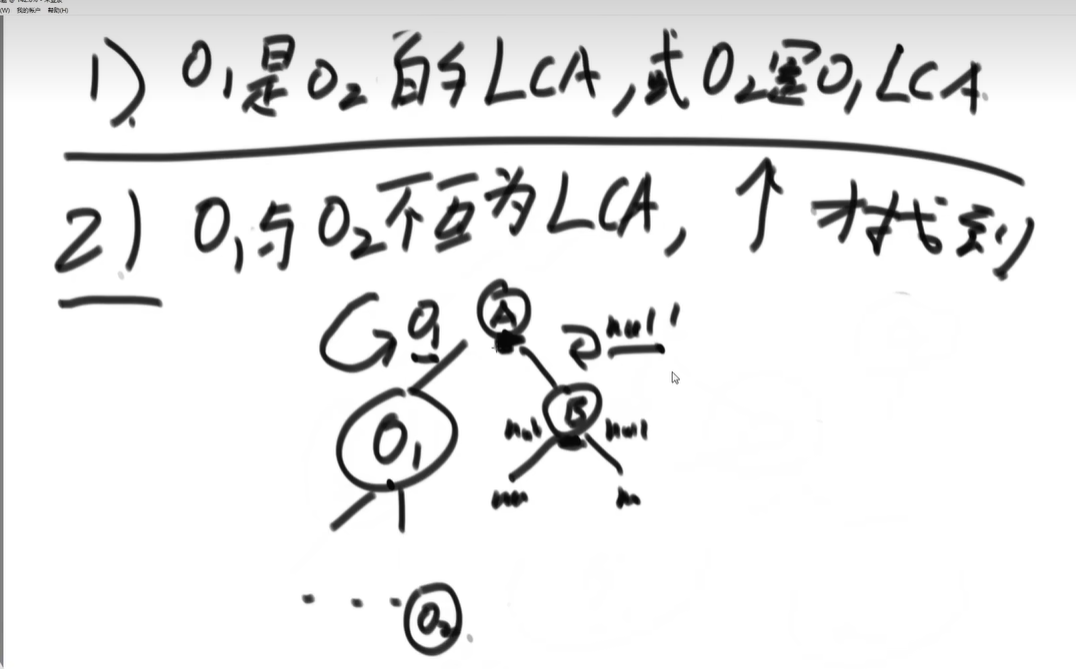 (W) 我的帐户 帮助(H)
1) O1是O2的LCA,或O2是O1LCA
2) O1与O2不互为LCA, ↑才找到
O1 A null
O1 B
null null
O2